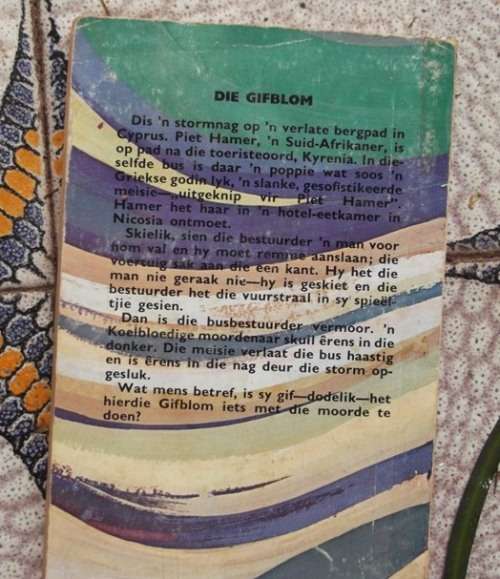 DIE GIFBLOM
Dis 'n stormnag op 'n verlate bergpad in
Cyprus. Piet Hamer, 'n Suid-Afrikaner, is
op pad na die toeristeoord, Kyrenia. In die-
selfde bus is daar 'n poppie wat soos 'n
Griekse godin lyk, 'n slanke, gesofistikeerde
meisie—„uitgeknip vir Piet Hamer”.
Hamer het haar in 'n hotel-eetkamer in
Nicosia ontmoet.
Skielik, sien die bestuurder 'n man voor
hom val en hy moet remme aanslaan; die
voertuig sak aan die een kant. Hy het die
man nie geraak nie—hy is geskiet en die
bestuurder het die vuurstraal in sy spieël-
tjie gesien.
Dan is die busbestuurder vermoor. 'n
Koelbloedige moordenaar skuil êrens in die
donker. Die meisie verlaat die bus haastig
en is êrens in die nag deur die storm op-
gesluk.
Wat mens betref, is sy gif—dodelik—het
hierdie Gifblom iets met die moorde te
doen?